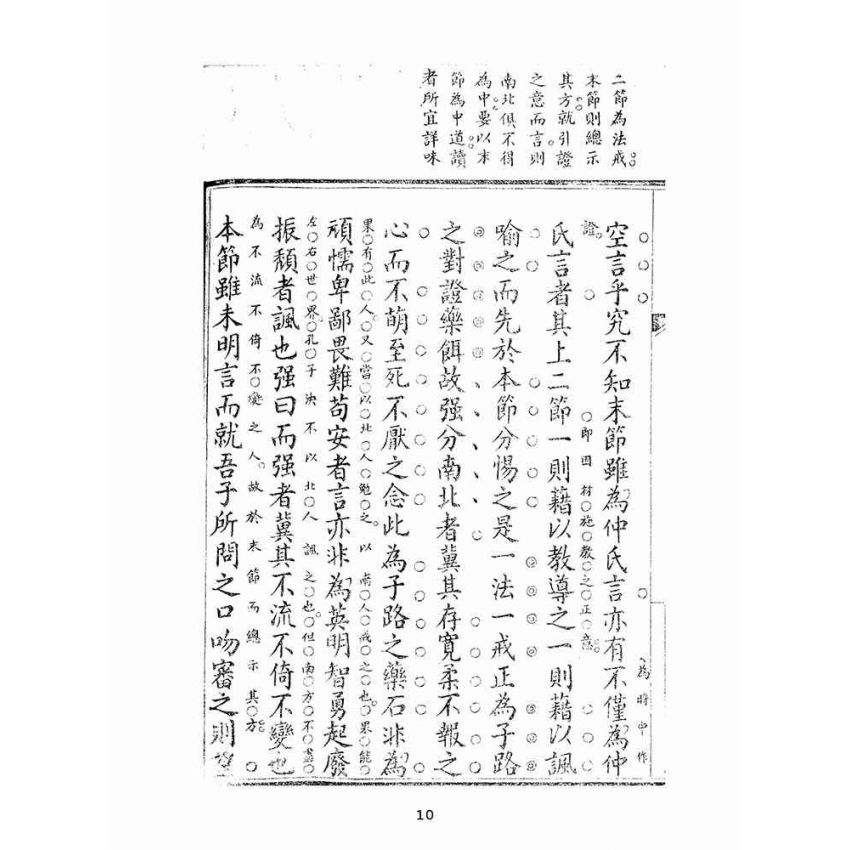 二節為法戒
末節則總示
其方就引證
之意而言則
南北俱不得
為中要以末
節為中道讀
者所宜詳味
為時中作
空言乎究不知末節雖為仲氏言亦有不僅為仲
證 即因材施教之正意
氏言者其上二節一則藉以教導之一則藉以諷
喻之而先於本節分惕之是一法一戒正為子路
之對證藥餌故强分南北者冀其存寬柔不報之
心而不萌至死不厭之念此為子路之藥石非為
果有此人又當以北人勉之以南人戒之也果能
頑懦卑鄙畏難苟安者言亦非為英明智勇起廢
左右世界孔子決不以北人諷之也但南方不盡
振頹者諷也强曰而强者冀其不流不倚不變也
為不流不倚不變之人故於末節而總示其方
本節雖未明言而就吾子所問之口吻審之則
10